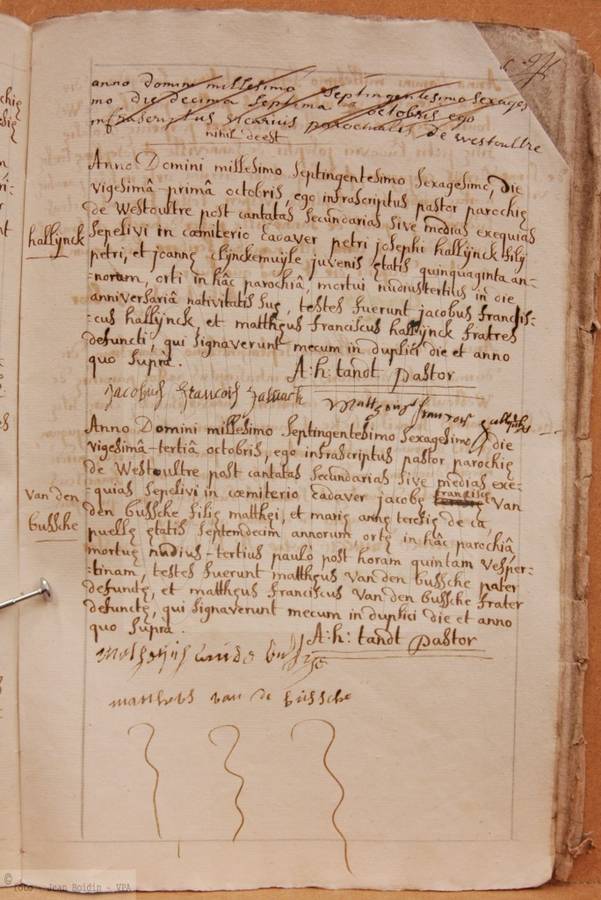 anno domini millesimo Septingentesimo Sexages
mo die decima Septima octobris ego
infrascriptus vicarius parochialis de westoultre
nihil deest
Anno Domini millesimo Septingentesimo Sexagesimo, die
vigesimâ-primâ octobris, ego infrascriptus pastor parochię
de Westoultre post cantatas Secundarias sive medias exequias
hallÿnck
Sepelivi in cœmiterio Cadaver petri josephi hallÿnck filij
petri, et joannę Clÿnckemuÿle juvenis ętatis quinquaginta an-
=norum, orti in hâc parochiâ, mortui nudiustertius in die
anniversariâ nativitatis suę, testes fuerunt jacobus francis=
=cus hallÿnck, et matthęus franciscus hallÿnck fratres
defuncti, qui signaverunt mecum in duplici die et anno
quo Supra.
A:h: tandt pastor
jacobus francois
Anno Domini millesimo Septingentesimo Sexagesimo, die
vigesimâ-tertiâ octobris, ego infrascriptus pastor parochię
de Westoultre post cantatas Secundarias sive medias exe=
van den
=quias Sepelivi in cœmiterio Cadaver jacobę franciscę Van
bussche
den bussche filię matthęi, et marię annę teresię de ca,
puellę ętatis Septemdecim annorum, ortę in hâc parochiâ,
mortuę nudius-tertius paulò post horam quintam vesper=
=tinam, testes fuerunt matthęus Van den bussche pater
defunctę, et matthęus franciscus Van den bussche frater
defunctę, qui signaverunt mecum in duplici die et anno
quo Supra.
A:h: tandt pastor
mattheus van de bussche
© foto - Jean Roidin - VPA